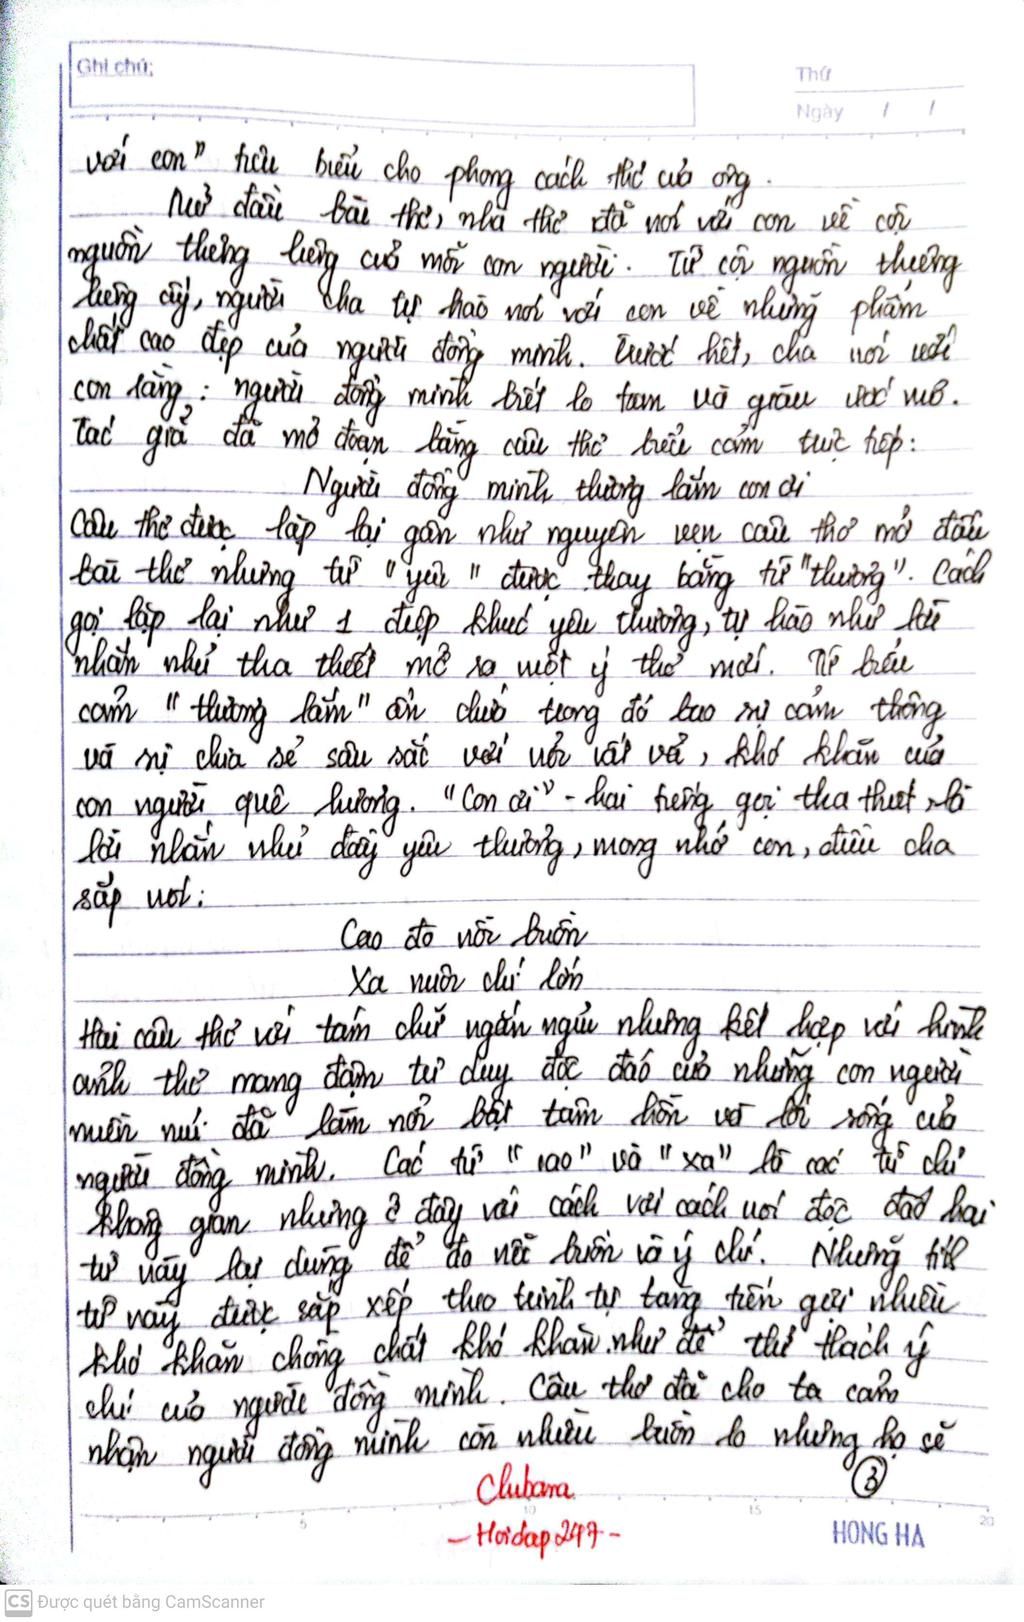 Ghi chú:
Thứ
Ngày / /
với con" tiêu biểu cho phong cách thơ của ông.
Mở đầu bài thơ, nhà thơ đã nói với con về cội
nguồn thiêng liêng của mỗi con người. Từ cội nguồn thiêng
liêng ấy, người cha tự hào nói với con về những phẩm
chất cao đẹp của người đồng mình. Trước hết, cha nói với
con rằng: người đồng mình biết lo toan và giàu ước mơ.
Tác giả đã mở đoạn bằng câu thơ biểu cảm trực tiếp:
Người đồng mình thương lắm con ơi
Câu thơ được lặp lại gần như nguyên vẹn câu thơ mở đầu
bài thơ nhưng từ "yêu" được thay bằng từ "thương". Cách
gọi lặp lại như 1 điệp khúc yêu thương, tự hào như lời
nhắn nhủ tha thiết mở ra một ý thơ mới. Từ biểu
cảm "thương lắm" ẩn chứa trong đó bao sự cảm thông
và sự chia sẻ sâu sắc với nỗi vất vả, khó khăn của
con người quê hương. "Con ơi" - hai tiếng gọi tha thiết, là
lời nhắn nhủ đầy yêu thương, mong nhớ con, điều cha
sắp nói:
Cao đo nỗi buồn
Xa nuôi chí lớn
Hai câu thơ với tám chữ ngắn ngủi nhưng kết hợp với hình
ảnh thơ mang đậm tư duy độc đáo của những con người
miền núi đã làm nổi bật tâm hồn và lối sống của
người đồng mình. Các từ "cao" và "xa" là các từ chỉ
không gian nhưng ở đây với cách với cách nói độc đáo hai
từ này lại dùng để đo nỗi buồn và ý chí. Những tính
từ này được sắp xếp theo trình tự tăng tiến gợi nhiều
khó khăn chồng chất khó khăn như để thử thách ý
chí của người đồng mình. Câu thơ đã cho ta cảm
nhận người đồng mình còn nhiều buồn lo nhưng họ sẽ
3
Clubara
- Hoidap247 -
5 10 15 20
HONG HA
CS Được quét bằng CamScanner